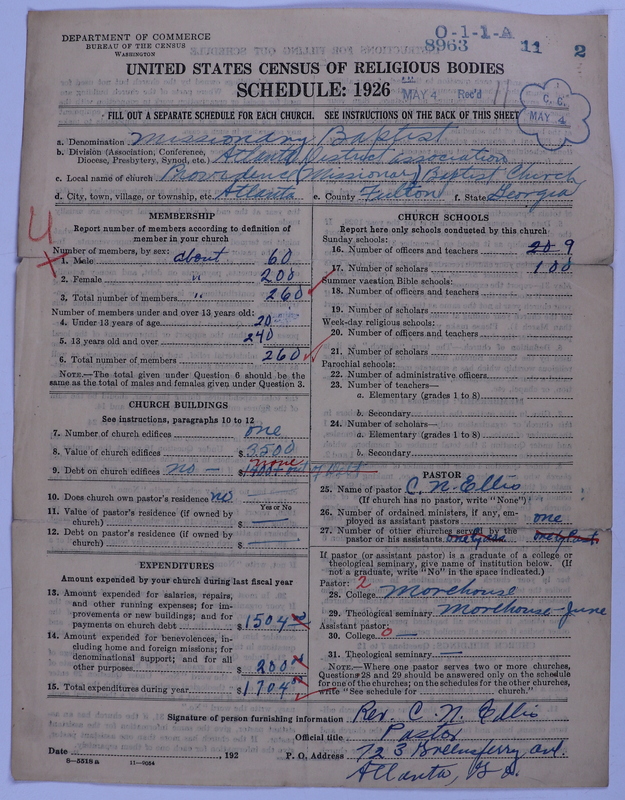 DEPARTMENT OF COMMERCE
BUREAU OF THE CENSUS
WASHINGTON
O-1-1-A
8963 11 2
UNITED STATES CENSUS OF RELIGIOUS BODIES
SCHEDULE: 1926
MAY 4 Rec'd
C. C.
MAY 4
FILL OUT A SEPARATE SCHEDULE FOR EACH CHURCH. SEE INSTRUCTIONS ON THE BACK OF THIS SHEET
a. Denomination Missionary Baptist
b. Division (Association, Conference, Diocese, Presbytery, Synod, etc.) Atlanta District association
c. Local name of church Providence Missionary Baptist Church
d. City, town, village, or township, etc. Atlanta e. County Fulton f. State Georgia
4
MEMBERSHIP
Report number of members according to definition of
member in your church
Number of members, by sex:
1. Male about 60
2. Female " 200
3. Total number of members " 260
Number of members under and over 13 years old:
4. Under 13 years of age 20
5. 13 years old and over 240
6. Total number of members 260
NOTE.—The total given under Question 6 should be the
same as the total of males and females given under Question 3.
CHURCH BUILDINGS
See instructions, paragraphs 10 to 12
7. Number of church edifices one
8. Value of church edifices $ 3500
9. Debt on church edifices no — $ none
10. Does church own pastor's residence no
Yes or No
11. Value of pastor's residence (if owned by
church) $ —
12. Debt on pastor's residence (if owned by
church) $ —
EXPENDITURES
Amount expended by your church during last fiscal year
13. Amount expended for salaries, repairs,
and other running expenses; for im-
provements or new buildings; and for
payments on church debt $ 1504
14. Amount expended for benevolences, in-
cluding home and foreign missions; for
denominational support; and for all
other purposes $ 200
15. Total expenditures during year $ 1704
CHURCH SCHOOLS
Report here only schools conducted by this church
Sunday schools:
16. Number of officers and teachers 20 9
17. Number of scholars 100
Summer vacation Bible schools:
18. Number of officers and teachers
19. Number of scholars
Week-day religious schools:
20. Number of officers and teachers
21. Number of scholars
Parochial schools:
22. Number of administrative officers
23. Number of teachers—
a. Elementary (grades 1 to 8)
b. Secondary
24. Number of scholars—
a. Elementary (grades 1 to 8)
b. Secondary
PASTOR
25. Name of pastor C. N. Ellis
(If church has no pastor, write "None")
26. Number of ordained ministers, if any, em-
ployed as assistant pastors one
27. Number of other churches served by the
pastor or his assistants
If pastor (or assistant pastor) is a graduate of a college or
theological seminary, give name of institution below. (If
not a graduate, write "No" in the space indicated.)
Pastor: 2
28. College Morehouse
29. Theological seminary Morehouse - June
Assistant pastor:
30. College 0 —
31. Theological seminary —
NOTE.—Where one pastor serves two or more churches,
Questions 28 and 29 should be answered only on the schedule
for one of the churches; on the schedules for the other churches,
write "See schedule for church."
Signature of person furnishing information Rev. C. N. Ellis
Official title Pastor
Date , 192 P. O. Address 723 Greensferry ave.
Atlanta, Ga.
8—5518 a 11—9054